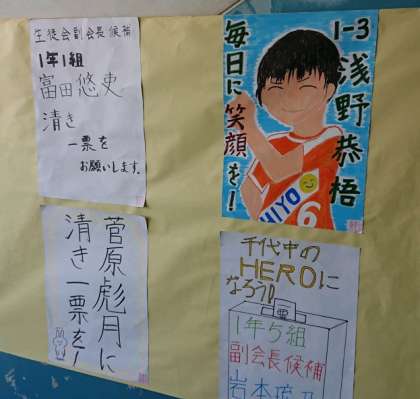 生徒会副会長候補
1年1組
富田悠吏
清き
一票を
お願いします。
1-3
浅野恭梧
毎日に笑顔を！
HIYO
6
菅原彪月に
清き一票を！
千代中の
HEROに
なろう!!
票
1年5組
副会長候補
岩本